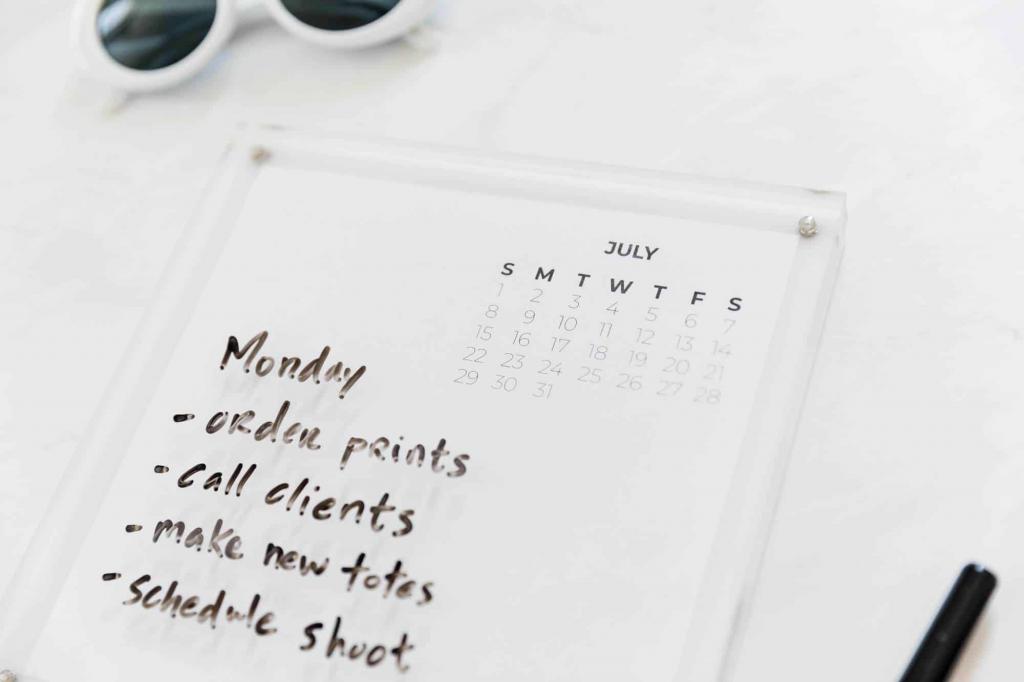 JULY
S M T W T F S
1 2 3 4 5 6 7
8 9 10 11 12 13 14
15 16 17 18 19 20 21
22 23 24 25 26 27 28
29 30 31
Monday
- order prints
- call clients
- make new totes
- schedule shoot